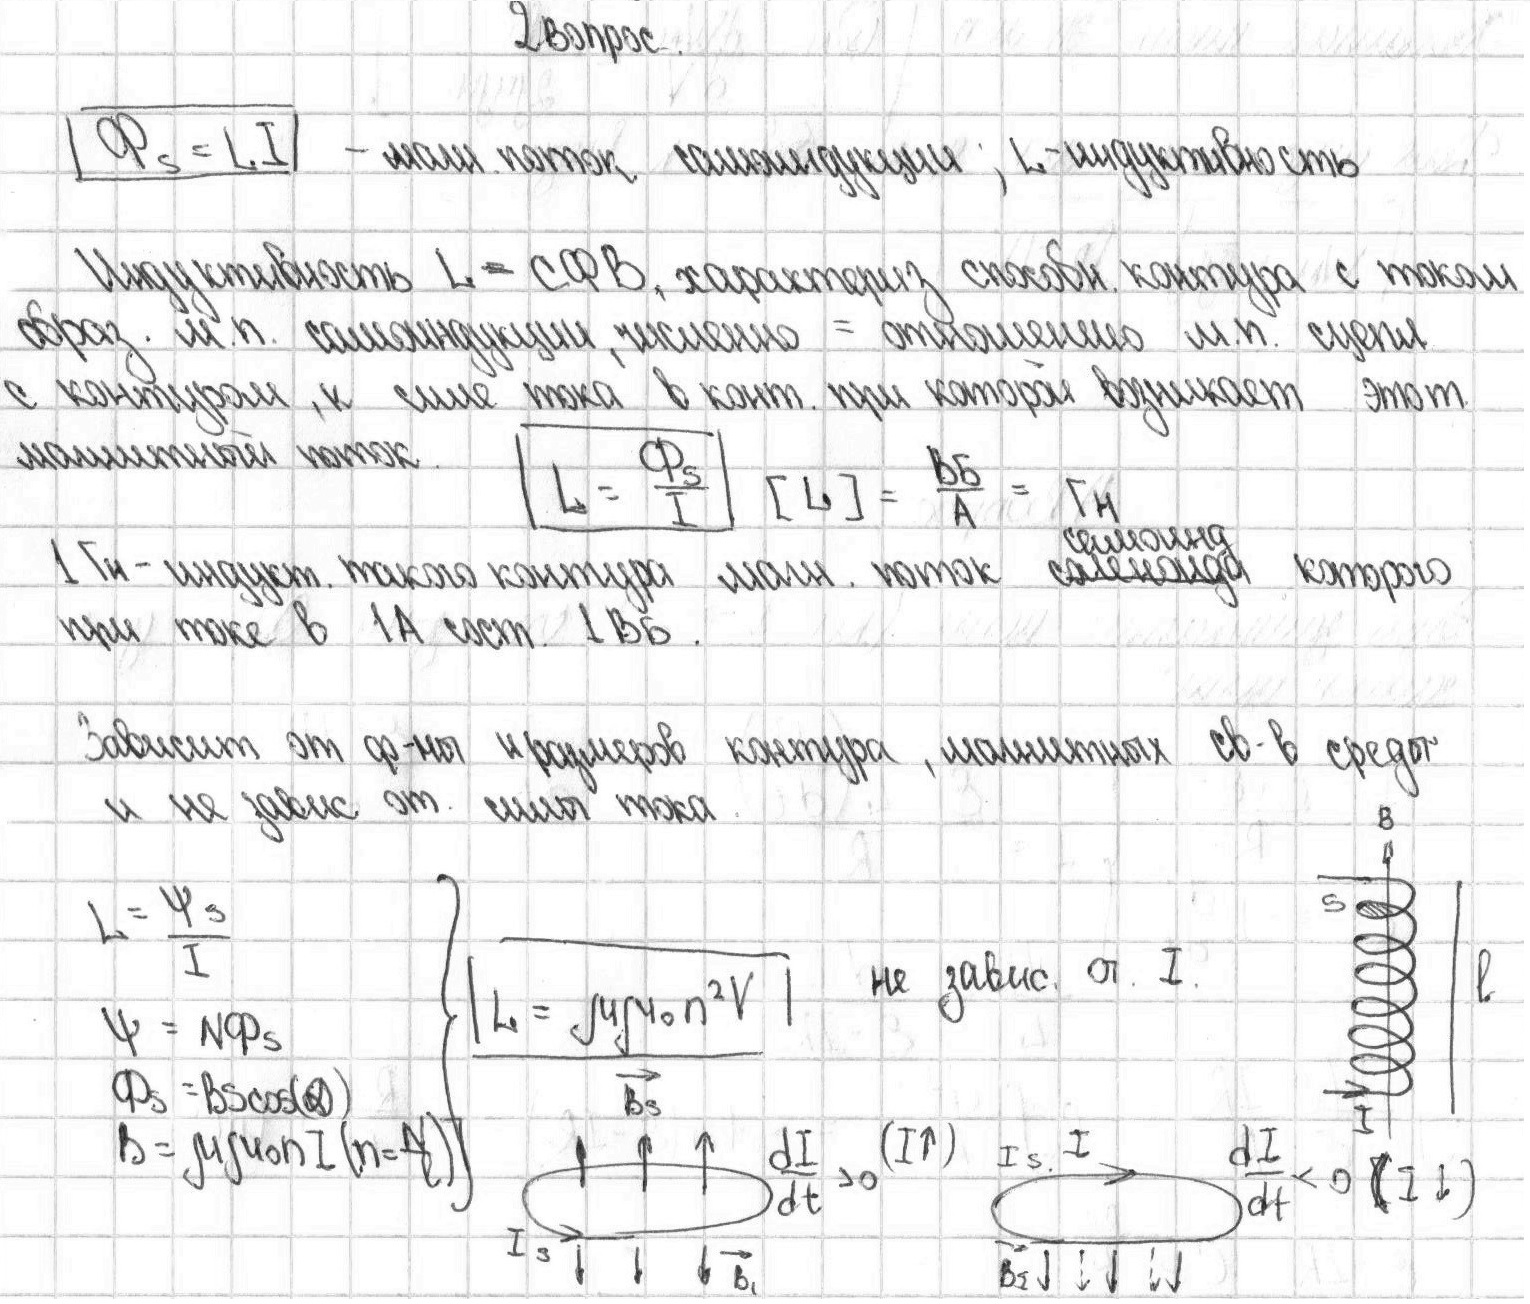 2 вопрос.
Фs = LI - магн. поток самоиндукции; L-индуктивность
Индуктивность L - СФВ, характериз способн. контура с током
образ. м.п. самоиндукции, численно = отношению м.п. сцепл
с контуром, к силе тока в конт. при которой возникает этот
магнитный поток.
L = Фs/I [L] = Вб/А = Гн
самоинд
1 Гн - индукт. такого контура магн. поток соленоида которого
при токе в 1А сост. 1Вб.
Зависит от ф-мы и размеров контура, магнитных св-в среды
и не завис от. силы тока.
B
L = Ψs/I
S
L = μμ₀n²V не завис. от I.
l
Ψ = NФs
Фs = BScos(α)
Bs
I
B = μμ₀nI (n=N/l)
dI/dt >0 (I↑)
Is. I
dI/dt < 0 (I↓)
Is
B₁